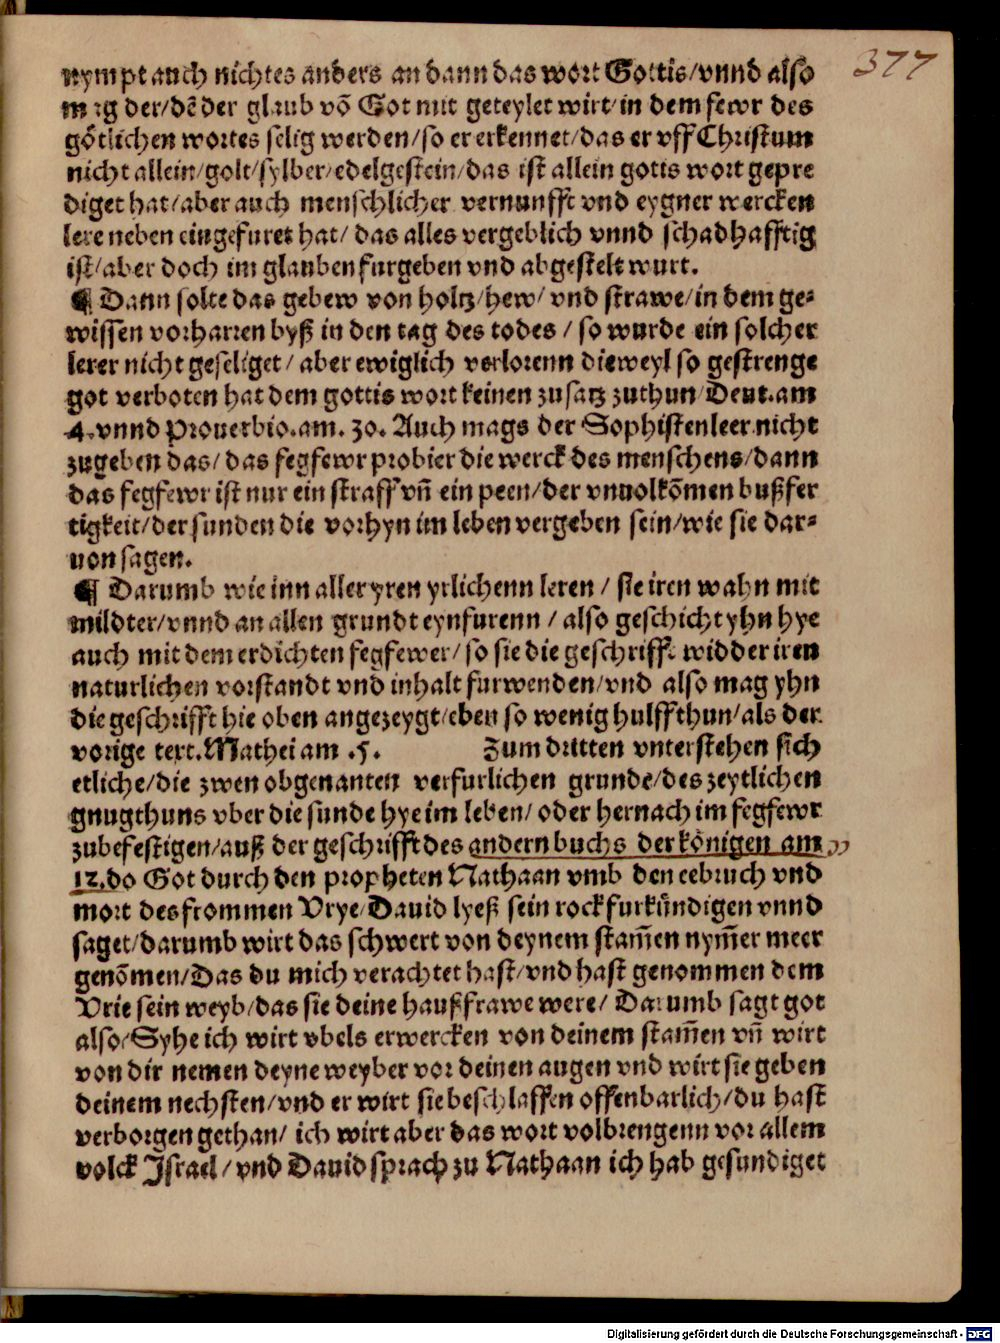 377
nympt auch nichtes anders an dann das wort Gottis/vnnd also
mag der/dē der glaub vō Got mit geteylet wirt/in dem fewr des
götlichen wortes selig werden/so er erkennet/das er vff Christum
nicht allein/golt/sylber/edelgestein/das ist allein gotis wort gepre
diget hat/aber auch menschlicher vernunfft vnd eygner wercken
lere neben eingefuret hat/ das alles vergeblich vnnd schadhafftig
ist/aber doch im glauben furgeben vnd abgestelt wurt.
¶ Dann solte das gebew von holtz/hew/ vnd strawe/in dem ge⸗
wissen vorharren byß in den tag des todes / so wurde ein solcher
lerer nicht geseliget/ aber ewiglich verlorenn dieweyl so gestrenge
got verboten hat dem gottis wort keinen zusatz zuthun/Deut.am
4.vnnd Prouerbio.am. 30. Auch mags der Sophisten leer nicht
zugeben das/ das fegfewr probier die werck des menschens/dann
das fegfewr ist nur ein straff vn̄ ein peen/der vnuolkōmen bußfer
tigkeit/der sunden die vorhyn im leben vergeben sein/wie sie dar⸗
uon sagen.
¶ Darumb wie inn aller yren yrlichenn leren / sie iren wahn mit
mildter/vnnd an allen grundt eynfurenn / also geschicht yhn hye
auch mit dem erdichten fegfewer/so sie die geschrifft widder iren
naturlichen vorstandt vnd inhalt furwenden/vnd also mag yhn
die geschrifft hie oben angezeygt/eben so wenig hulff thun/als der
vorige text.Mathei am .5. Zum dritten vnterstehen sich
etliche/die zwen obgenanten verfurlichen grunde/des zeytlichen
gnugthuns vber die sunde hye im leben/ oder hernach im fegfewr
zubefestigen/auß der geschrifft des andern buchs der königen am
12.do Got durch den propheten Nathaan vmb den eebruch vnd
mort des frommen Vrye/Dauid lyeß sein rock furkündigen vnnd
saget/darumb wirt das schwert von deynem stam̄en nym̄er meer
genōmen/Das du mich verachtet hast/vnd hast genommen dem
Vrie sein weyb/das sie deine haußfrawe were/ Darumb sagt got
also/Syhe ich wirt vbels erwercken von deinem stam̄en vn̄ wirt
von dir nemen deyne weyber vor deinen augen vnd wirt sie geben
deinem nechsten/vnd er wirt sie beschlaffen offenbarlich/du hast
verborgen gethan/ ich wirt aber das wort volbrengenn vor allem
volck Israel/vnd Dauid sprach zu Nathaan ich hab gesundiget
Digitalisierung gefördert durch die Deutsche Forschungsgemeinschaft - DFG